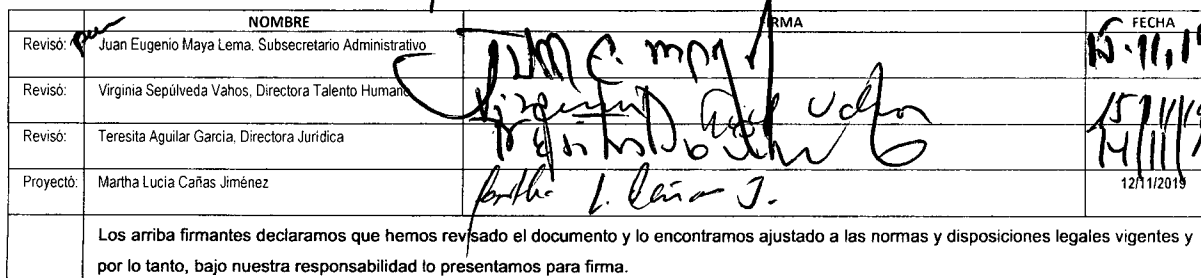 NOMBRE FIRMA FECHA
Revisó: Juan Eugenio Maya Lema, Subsecretario Administrativo
Revisó: Virginia Sepúlveda Vahos, Directora Talento Humano
Revisó: Teresita Aguilar García, Directora Jurídica
Proyectó: Martha Lucia Cañas Jiménez 12/11/2019
Los arriba firmantes declaramos que hemos revisado el documento y lo encontramos ajustado a las normas y disposiciones legales vigentes y
por lo tanto, bajo nuestra responsabilidad lo presentamos para firma.